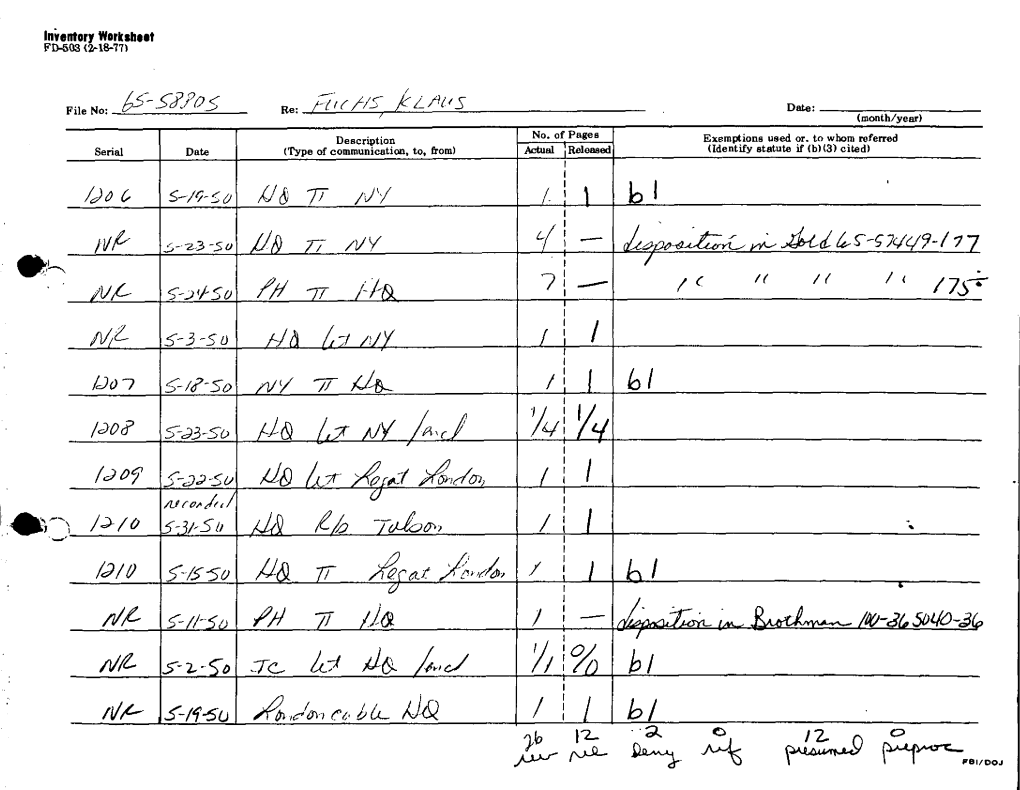 Inventory Worksheet
FD-503 (2-18-77)
File No: 65-58805 Re: FUCHS, KLAUS Date:
(month/year)
Serial Date Description (Type of communication, to, from) No. of Pages Actual Released Exemptions used or, to whom referred (Identify statute if (b)(3) cited)
1206 5-19-50 HQ TT NY 1 1 b1
NR 5-23-50 HQ TT NY 4 — disposition in Gold 65-57449-177
NR 5-24-50 PH TT HQ 7 — " " " " 175
NR 5-3-50 HQ let NY 1 1
1207 5-18-50 NY TT HQ 1 1 b1
1208 5-23-50 HQ let NY /encl 1/4 1/4
1209 5-22-50 HQ let Legat London 1 1
recorded
1210 5-31-50 HQ R/S Tolson 1 1
1210 5-15-50 HQ TT Legat London 1 1 b1
NR 5-11-50 PH TT HQ 1 — disposition in Brothman 100-365040-36
NR 5-2-50 let HQ /encl 1/1 0/0 b1
NR 5-19-50 London cable HQ 1 1 b1
26 12 2 0 12 0
rev rel deny ref presumed preproc
FBI/DOJ